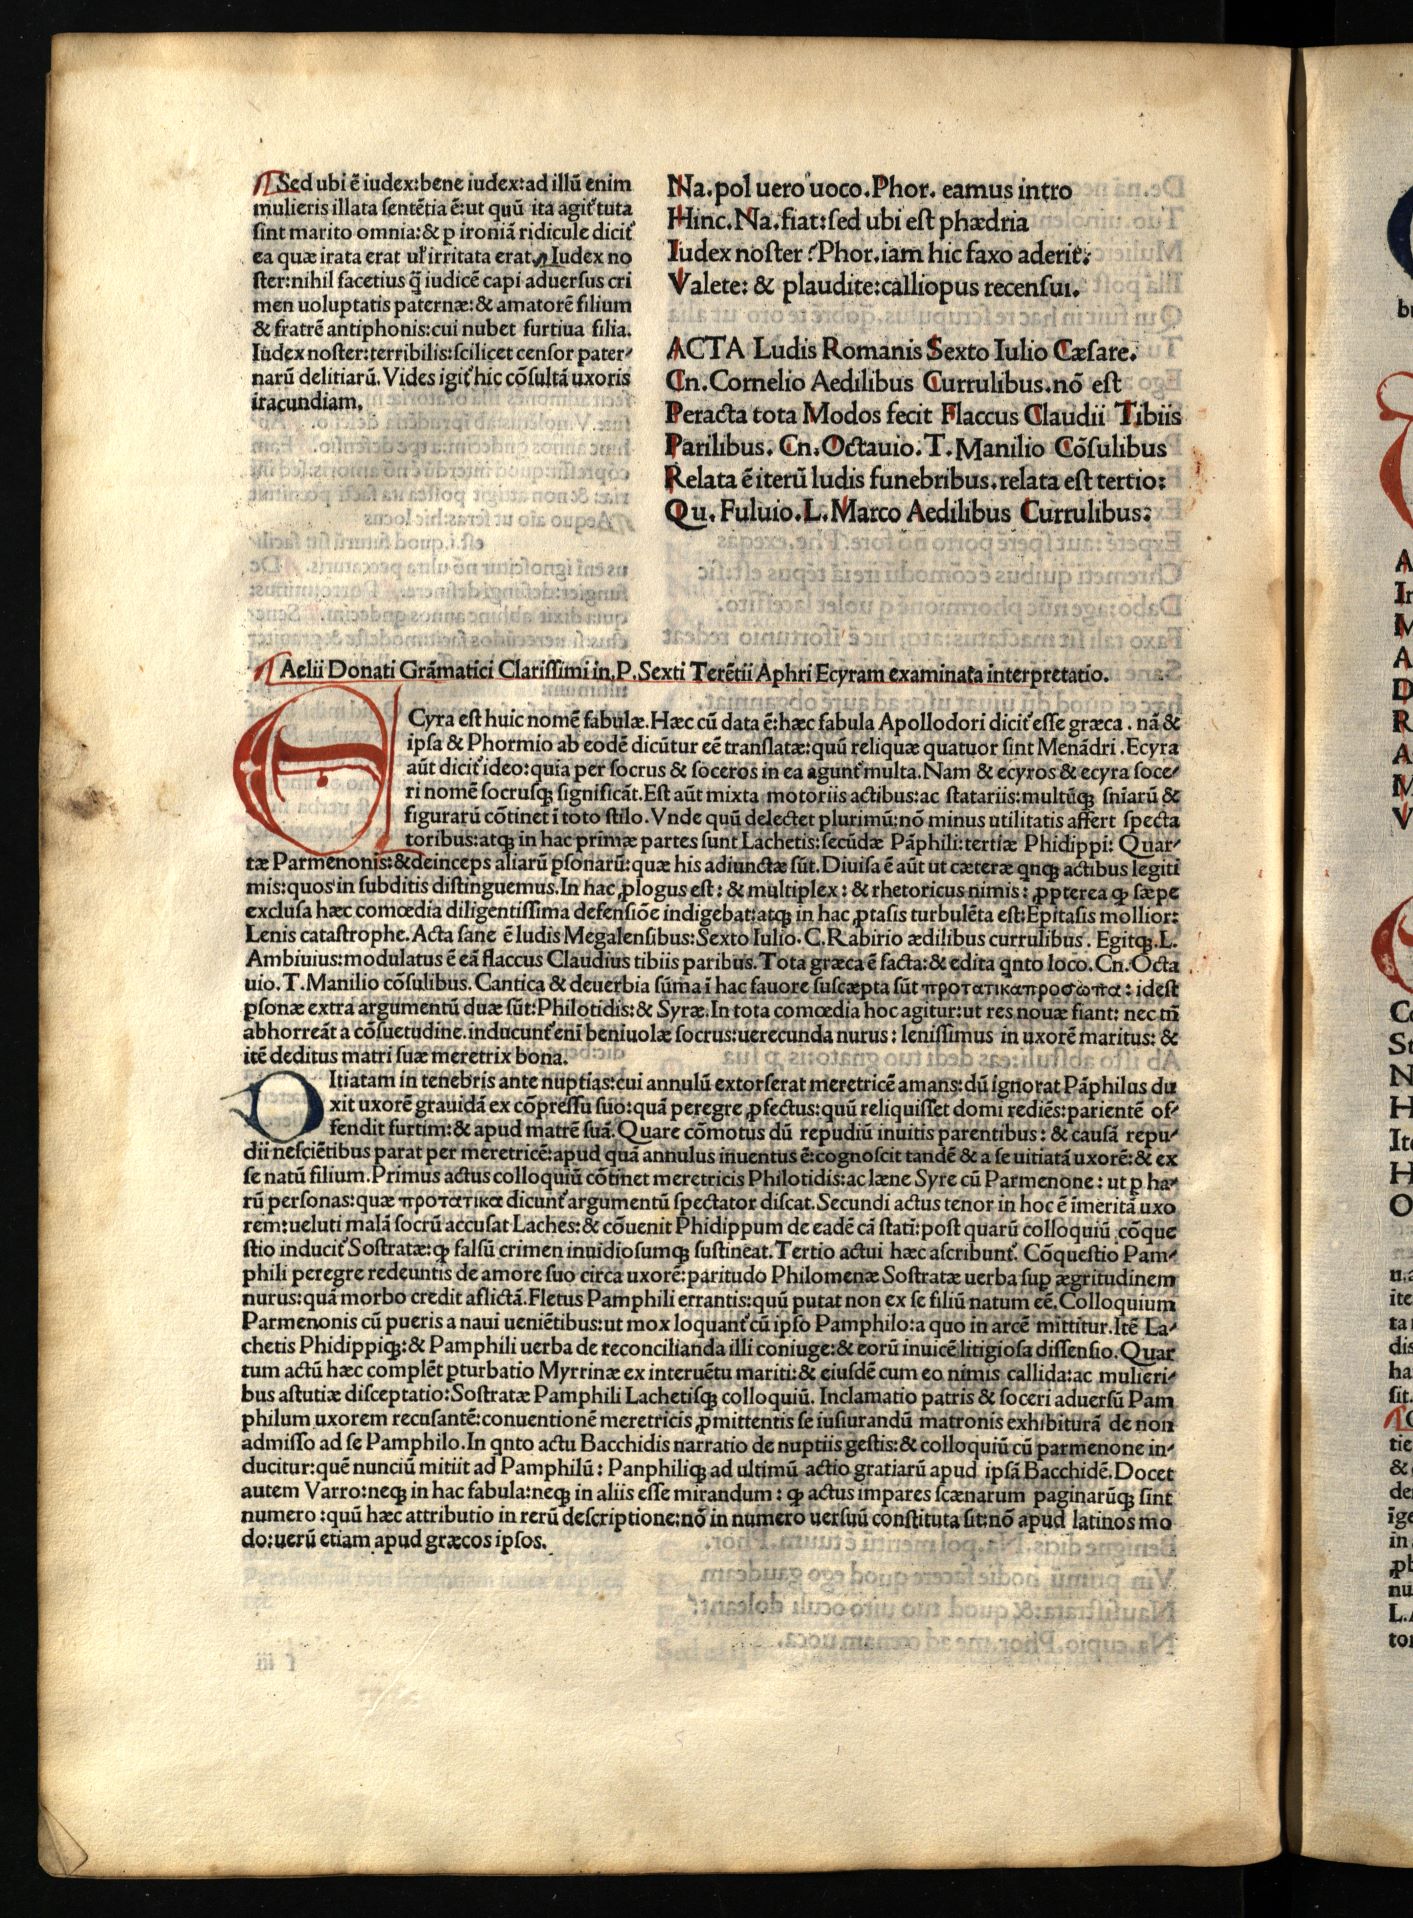 ¶ Sed ubi ē iudex:bene iudex:ad illū enim
mulieris illata sentētia ē:ut quū ita agit᷑ tuta
sint marito omnia:& ꝑ ironiā ridicule dicit᷑
ea quæ irata erat ul᷑ irritata erat. ¶ Iudex no
ster:nihil facetius q̄ iudicē capi aduersus cri
men uoluptatis paternæ:& amatorē filium
& fratrē antiphonis:cui nubet furtiua filia.
Iudex noster:terribilis:scilicet censor pater-
narū delitiarū.Vides igit᷑ hic cōsultā uxoris
iracundiam.
Na.pol uero uoco.Phor. eamus intro
Hinc.Na.fiat:sed ubi est phædria
Iudex noster?Phor.iam hic faxo aderit:
Valete: & plaudite:calliopus recensui.
ACTA Ludis Romanis Sexto Iulio Cæsare.
Cn.Cornelio Aedilibus Currulibus.nō est
Peracta tota Modos fecit Flaccus Claudii Tibiis
Parilibus. Cn.Octauio.T.Manilio Cōsulibus
Relata ē iterū ludis funebribus.relata est tertio:
Qu.Fuluio.L.Marco Aedilibus Currulibus:
¶ Aelii Donati Grāmatici Clarissimi in.P.Sexti Terētii Aphri Ecyram examinata interpretatio.
ECyra est huic nomē fabulæ.Hæc cū data ē:hæc fabula Apollodori dicit᷑ esse græca . nā &
ipsa & Phormio ab eodē dicūtur eē translatæ:quū reliquæ quatuor sint Menādri .Ecyra
aūt dicit᷑ ideo:quia per socrus & soceros in ea agunt᷑ multa.Nam & ecyros & ecyra soce-
ri nomē socrusqꝫ significāt.Est aūt mixta motoriis actibus:ac statariis:multūqꝫ sn̄iarū &
figurarū cōtinet ī toto stilo.Vnde quū delectet plurimū:nō minus utilitatis affert specta
toribus:atqꝫ in hac primæ partes sunt Lachetis:secūdæ Pāphili:tertiæ Phidippi: Quar-
tæ Parmenonis:&deinceps aliarū ꝑsonarū:quæ his adiunctæ sūt.Diuisa ē aūt ut cæteræ qnqꝫ actibus legiti
mis:quos in subditis distinguemus.In hac ꝓlogus est: & multiplex: & rhetoricus nimis: ꝓpterea ꝙ sæpe
exclusa hæc comœdia diligentissima defensiōe indigebat:atqꝫ in hac ꝓtasis turbulēta est:Epitasis mollior:
Lenis catastrophe.Acta sane ē ludis Megalensibus:Sexto Iulio.C.Rabirio ædilibus currulibus. Egitqꝫ.L.
Ambiuius:modulatus ē eā flaccus Claudius tibiis paribus.Tota græca ē facta:& edita qnto loco.Cn.Octa
uio.T.Manilio cōsulibus.Cantica & deuerbia sūma ī hac fauore suscæpta sūt προτατικαπροσωπα: idest
ꝑsonæ extra argumentū duæ sūt:Philotidis:& Syræ.In tota comœdia hoc agitur:ut res nouæ fiant: nec tn̄
abhorreāt a cōsuetudine.inducunt᷑ enī beniuolæ socrus:uerecunda nurus: lenissimus in uxorē maritus: &
itē deditus matri suæ meretrix bona.
OItiatam in tenebris ante nuptias:cui annulū extorserat meretricē amans:dū ignorat Pāphilus du
xit uxorē grauidā ex cōpressu suo:quā peregre ꝓfectus:quū reliquisset domi rediēs:parientē of-
fendit furtim:& apud matrē suā.Quare cōmotus dū repudiū inuitis parentibus: & causā repu-
dii nesciētibus parat per meretricē:apud quā annulus inuentus ē:cognoscit tandē & a se uitiatā uxorē:& ex
se natū filium.Primus actus colloquiū cōtinet meretricis Philotidis:ac læne Syre cū Parmenone: ut ꝑ ha-
rū personas:quæ προτατικα dicunt᷑ argumentū spectator discat.Secundi actus tenor in hoc ē īmeritā uxo
rem:ueluti malā socrū accusat Laches:& cōuenit Phidippum de eadē cā statī:post quarū colloquiū cōque
stio inducit᷑ Sostratæ:ꝙ falsū crimen inuidiosumqꝫ sustineat.Tertio actui hæc ascribunt᷑. Cōquestio Pam-
phili peregre redeuntis de amore suo circa uxorē:paritudo Philomenæ Sostratæ uerba suꝑ ægritudinem
nurus:quā morbo credit aflictā.Fletus Pamphili errantis:quū putat non ex se filiū natum eē.Colloquium
Parmenonis cū pueris a naui ueniētibus:ut mox loquant᷑ cū ipso Pamphilo:a quo in arcē mittitur.Itē La-
chetis Phidippiqꝫ:& Pamphili uerba de reconcilianda illi coniuge:& eorū inuicē litigiosa dissensio.Quar
tum actū hæc complēt ꝑturbatio Myrrinæ ex interuētu mariti:& eiusdē cum eo nimis callida:ac mulieri-
bus astutiæ disceptatio:Sostratæ Pamphili Lachetisqꝫ colloquiū. Inclamatio patris & soceri aduersū Pam
philum uxorem recusantē:conuentionē meretricis ꝓmittentis se iusiurandū matronis exhibiturā de non
admisso ad se Pamphilo.In qnto actu Bacchidis narratio de nuptiis gestis:& colloquiū cū parmenone in-
ducitur:quē nunciū mitiit ad Pamphilū: Panphiliqꝫ ad ultimū actio gratiarū apud ipsā Bacchidē.Docet
autem Varro:neqꝫ in hac fabula:neqꝫ in aliis esse mirandum: ꝙ actus impares scænarum paginarūqꝫ sint
numero :quū hæc attributio in rerū descriptione:nō in numero uersuū constituta sit:nō apud latinos mo
do:uerū etiam apud græcos ipsos.